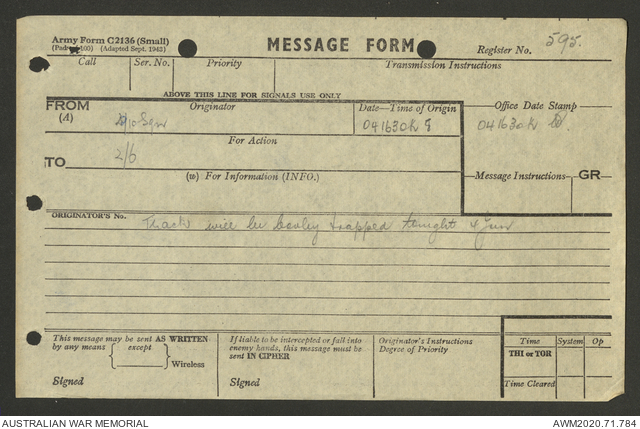 Army Form C2136 (Small)
(Pads of 100) (Adapted Sept. 1943)
MESSAGE FORM
Register No. 595.
Call Ser. No. Priority Transmission Instructions
ABOVE THIS LINE FOR SIGNALS USE ONLY
FROM Originator Date—Time of Origin Office Date Stamp
(A) 041630K 041630K
For Action
TO 2/6
(w) For Information (INFO.) Message Instructions GR
ORIGINATOR'S No.
Track will be booby trapped tonight 4 Jun
This message may be sent AS WRITTEN
by any means except
Wireless
Signed
If liable to be intercepted or fall into
enemy hands, this message must be
sent IN CIPHER
Signed
Originator's Instructions
Degree of Priority
Time System Op
THI or TOR
Time Cleared
AUSTRALIAN WAR MEMORIAL AWM2020.71.784